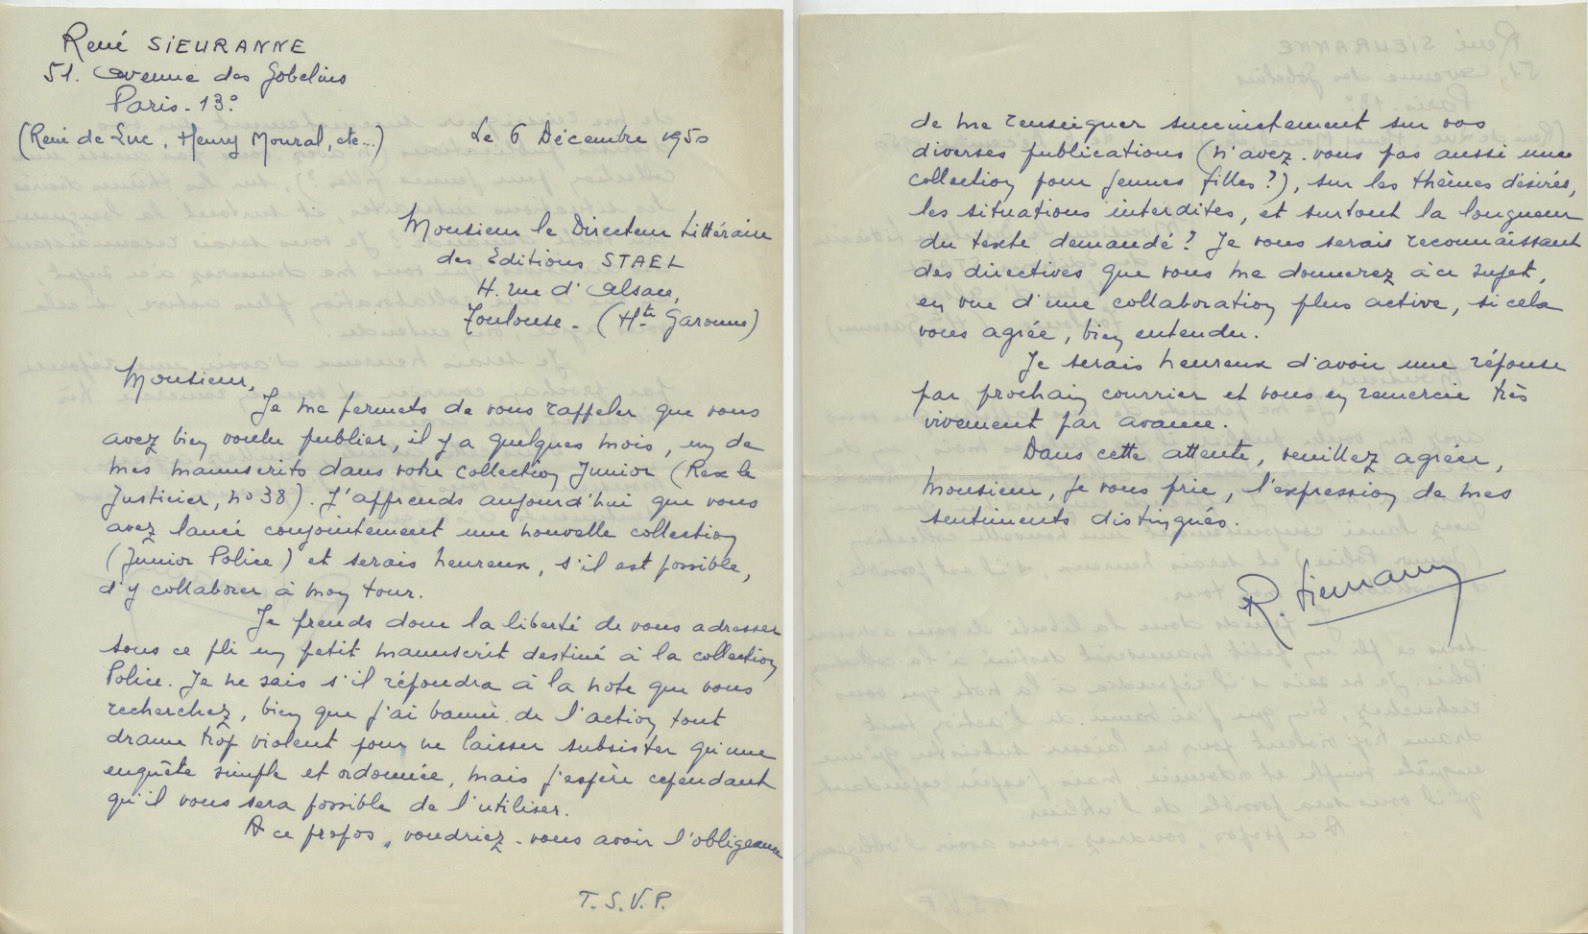 René SIEURANNE
51. avenue des Gobelins
Paris-13°
(René de Luc, Henry Moural, etc...)
Le 6 Décembre 1950
Monsieur le Directeur Littéraire
des Editions STAEL
4. rue d'Alsace,
Toulouse - (Hte Garonne)
Monsieur,
Je me permets de vous rappeler que vous
avez bien voulu publier, il y a quelques mois, un de
mes manuscrits dans votre collection Junior (Rex le
Justicier, no 38). J'apprends aujourd'hui que vous
avez lancé conjointement une nouvelle collection
(Junior Police) et serais heureux, s'il est possible,
d'y collaborer à mon tour.
Je prends donc la liberté de vous adresser
sous ce pli un petit manuscrit destiné à la collection
Police. Je ne sais s'il répondra à la note que vous
recherchez, bien que j'ai banni de l'action tout
drame trôp violent pour ne laisser subsister qu'une
enquête simple et ordonnée, mais j'espère cependant
qu'il vous sera possible de l'utiliser.
A ce propos, voudriez-vous avoir l'obligeance
T.S.V.P.
de me renseigner succinctement sur vos
diverses publications (n'avez-vous pas aussi une
collection pour jeunes filles?), sur les thèmes désirés,
les situations interdites, et surtout la longueur
du texte demandé? Je vous serais reconnaissant
des directives que vous me donnerez à ce sujet,
en vue d'une collaboration plus active, si cela
vous agrée, bien entendu.
Je serais heureux d'avoir une réponse
par prochain courrier et vous en remercie très
vivement par avance.
Dans cette attente, veuillez agréer,
Monsieur, je vous prie, l'expression de mes
sentiments distingués.
R. Sieuranne